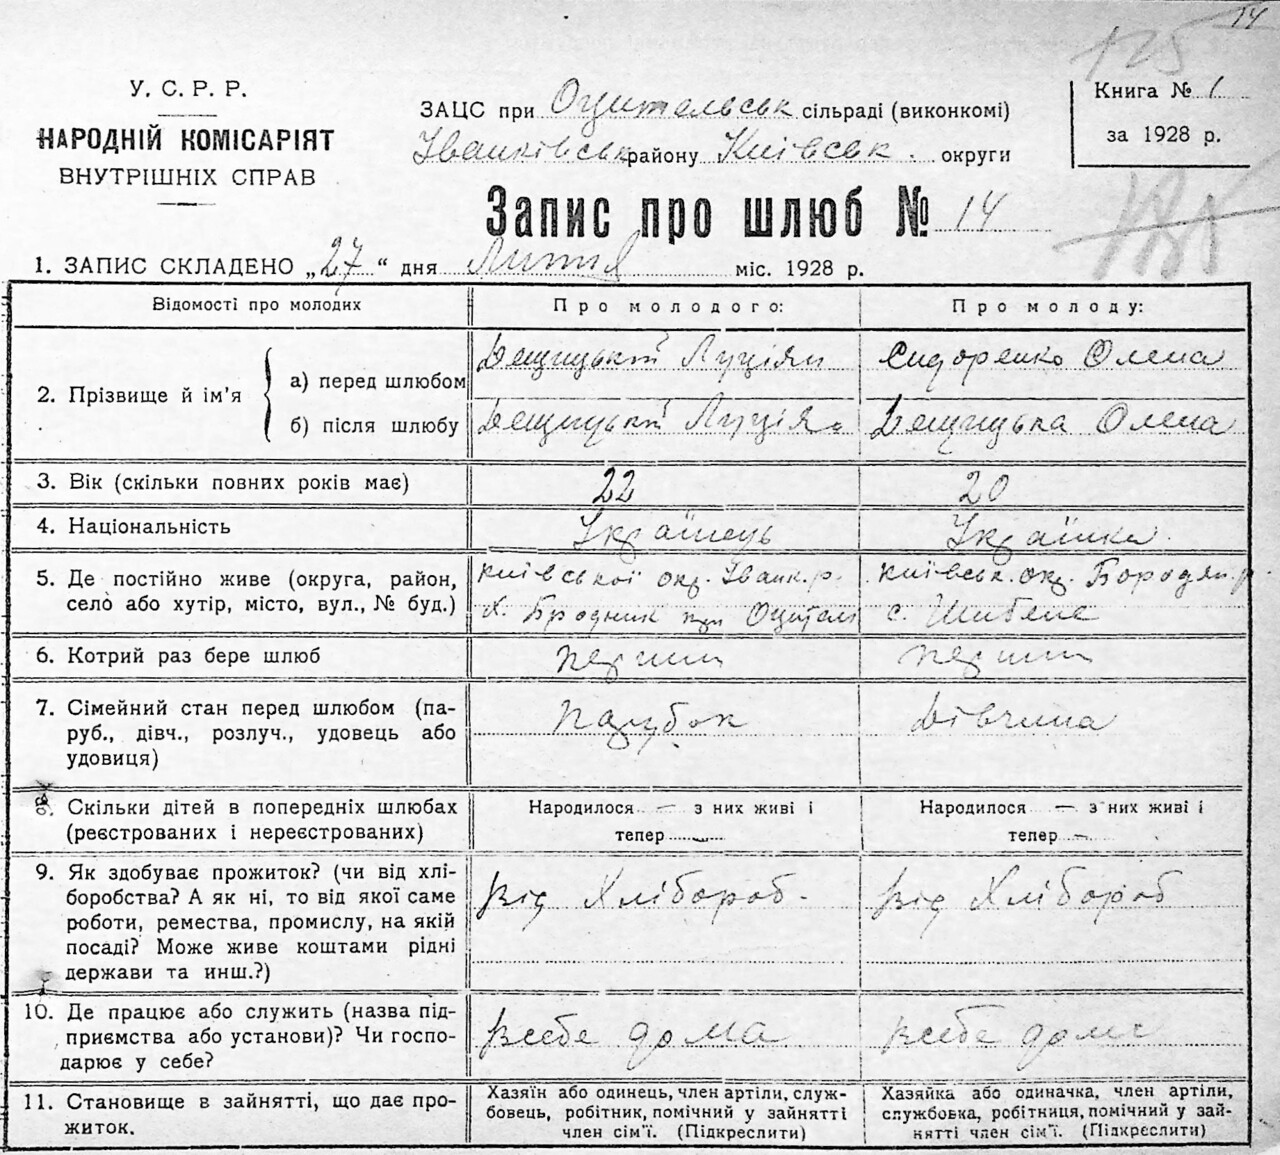 14
125
У. С. Р. Р.
НАРОДНІЙ КОМІСАРІЯТ
ВНУТРІШНІХ СПРАВ
ЗАЦС при Оцительськ сільраді (виконкомі)
Іванківськ району Київськ. округи
Книга № 1
за 1928 р.
Запис про шлюб № 14
1. ЗАПИС СКЛАДЕНО „27“ дня Лютня міс. 1928 р.
Відомості про молодих
Про молодого:
Про молоду:
2. Прізвище й ім'я
а) перед шлюбом
Дещицький Луціян
Сидоренко Олена
б) після шлюбу
Дещицький Луціян
Дещицька Олена
3. Вік (скільки повних років має)
22
20
4. Національність
Українець
Українка
5. Де постійно живе (округа, район,
село або хутір, місто, вул., № буд.)
Київської окр. Іванк. р.
х. Бродник при Оцителі
Київськ. окр. Бородян. р.
с. Шибене
6. Котрий раз бере шлюб
перший
перший
7. Сімейний стан перед шлюбом (па-
руб., дівч., розлуч., удовець або
удовиця)
Парубок
Дівчина
8. Скільки дітей в попередніх шлюбах
(реєстрованих і нереєстрованих)
Народилося — з них живі і
тепер —
Народилося — з них живі і
тепер —
9. Як здобуває прожиток? (чи від хлі-
боробства? А як ні, то від якої саме
роботи, ремества, промислу, на якій
посаді? Може живе коштами рідні
держави та инш.?)
від Хлібороб.
від Хлібороб
10. Де працює або служить (назва під-
приємства або установи)? Чи госпо-
дарює у себе?
всебе дома
всебе дома
11. Становище в зайнятті, що дає про-
житок.
Хазяїн або одинець, член артіли, служ-
бовець, робітник, помічний у зайнятті
член сім'ї. (Підкреслити)
Хазяйка або одиначка, член артіли,
службовка, робітниця, помічний у зай-
нятті член сім'ї. (Підкреслити)